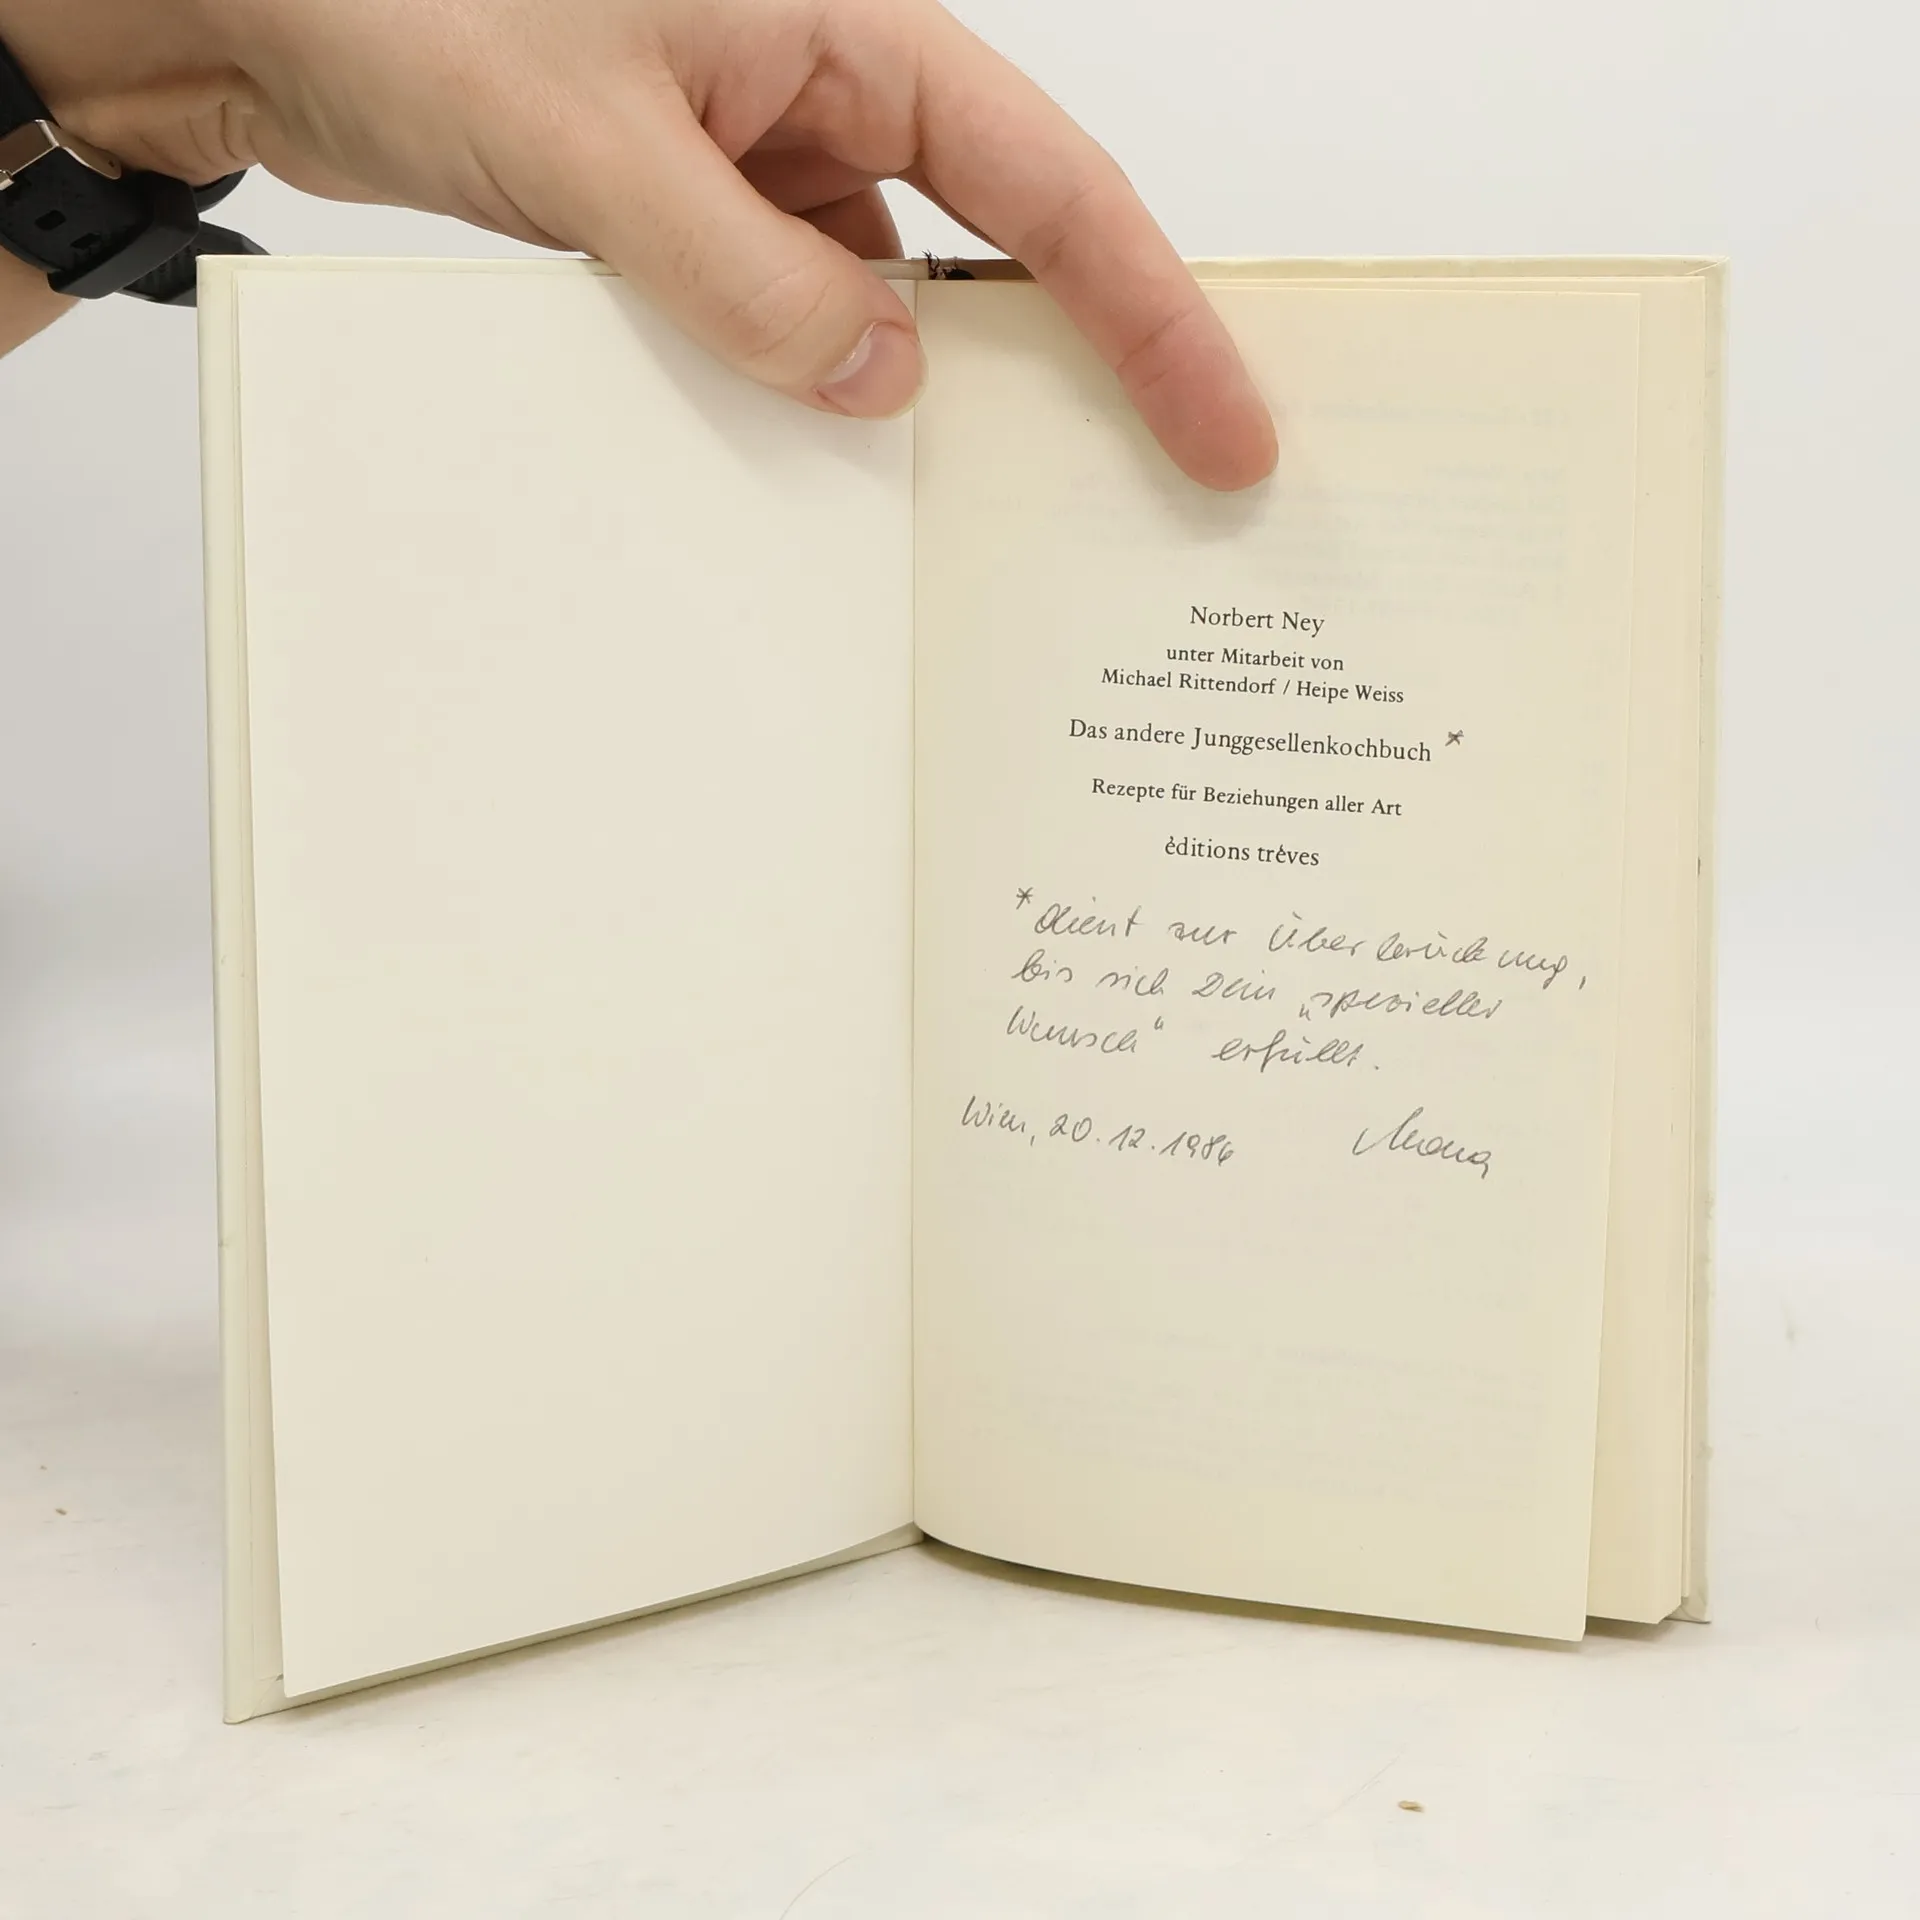 Norbert Ney
unter Mitarbeit von
Michael Rittendorf / Heipe Weiss
Das andere Junggesellenkochbuch *
Rezepte für Beziehungen aller Art
èditions tréves
* dient zur Überbrückung,
bis sich Dein „spezieller
Wunsch“ erfüllt.
Wien, 20.12.1986 Mona